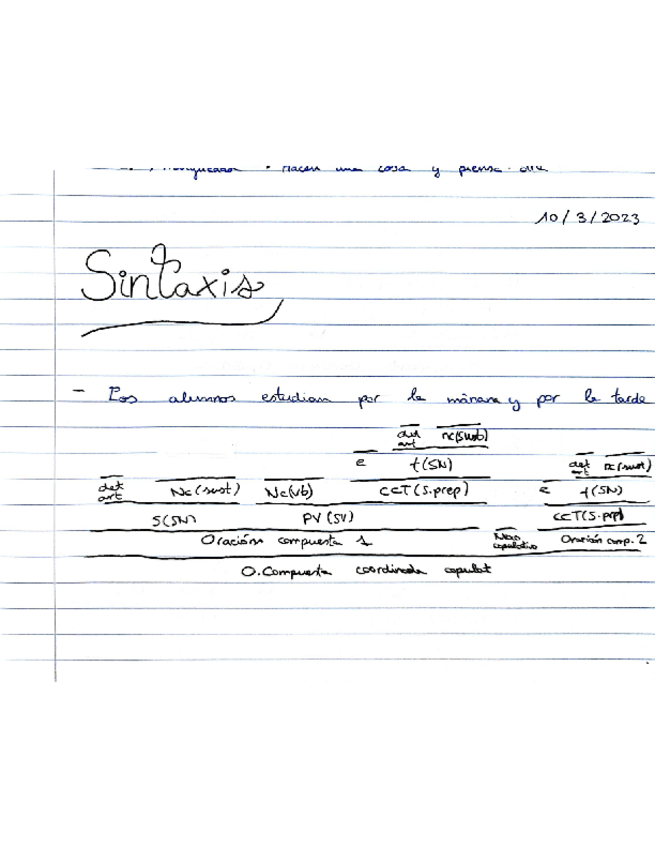 una cosa y piensa
10/3/2023
Sintaxis
- Los alumnos estudian por la mañana y por la tarde
det art nc(sust)
e t(SN) det art nc(sust)
det art Nc(sust) Nc(vb) CCT(S.prep) e t(SN)
S(SN) PV(SV) CCT(S.prp)
Oración compuesta 1 Nexo copulativo Oración comp. 2
O.Compuesta coordinada copulat